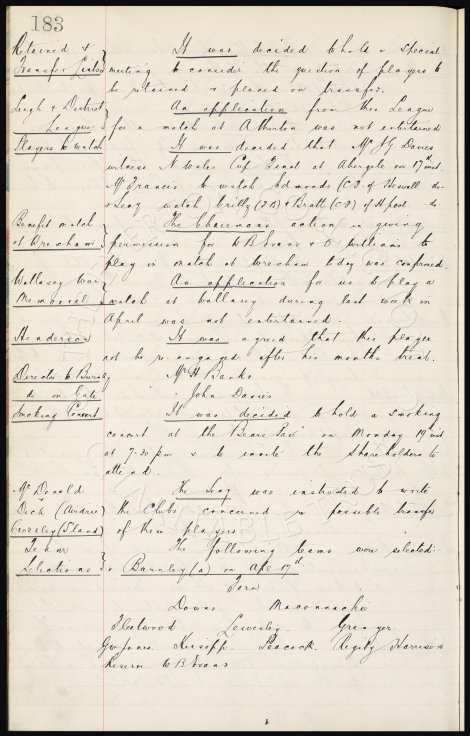 183
Retained &
Transfer Listed
It was decided to hold a special
meeting to consider the question of players to
be retained & placed on transfer.
Leigh & District
League
An application from this League
for a match at Atherton was not entertained
Players to watch
It was decided that Mr J G Davies
witness N Wales Cup Final at Abergele on 17th inst.
Mr Francis to watch Edmonds (C.F.) of
& Secy watch Crilly (R B) & Bratt (C F) of H'pool do
Benefit match
at Wrexham
The Chairmans action in giving
permission for W B Evans & O Williams to
play in match at Wrexham today was confirmed.
Wallasey War
Memorial
An application for us to play a
match at Wallasey during last week in
April was not entertained.
Henderson
It was agreed that this player
not be re-engaged after his months trial.
Director to
do on Gate
Mr H Banks
" John Davies
Smoking Concert
It was decided to hold a smoking
concert at the "Bears Paw" on Monday 19 inst
at 7-30 pm & to invite the Shareholders to
attend.
Mc Donald
Dick (Airdrie
Crossley (S
The Secy was instructed to write
the Clubs concerned re possible transfer
of these players
Team
Selections
The following teams were selected:-
v Barnsley (a) on Apl 17th
Fern
Downs Maconnachie
Fleetwood Lewesley. Grenyer
Gw Jones. Kirsopp. Peacock. Rigsby Harrison
Reserve W B Evans